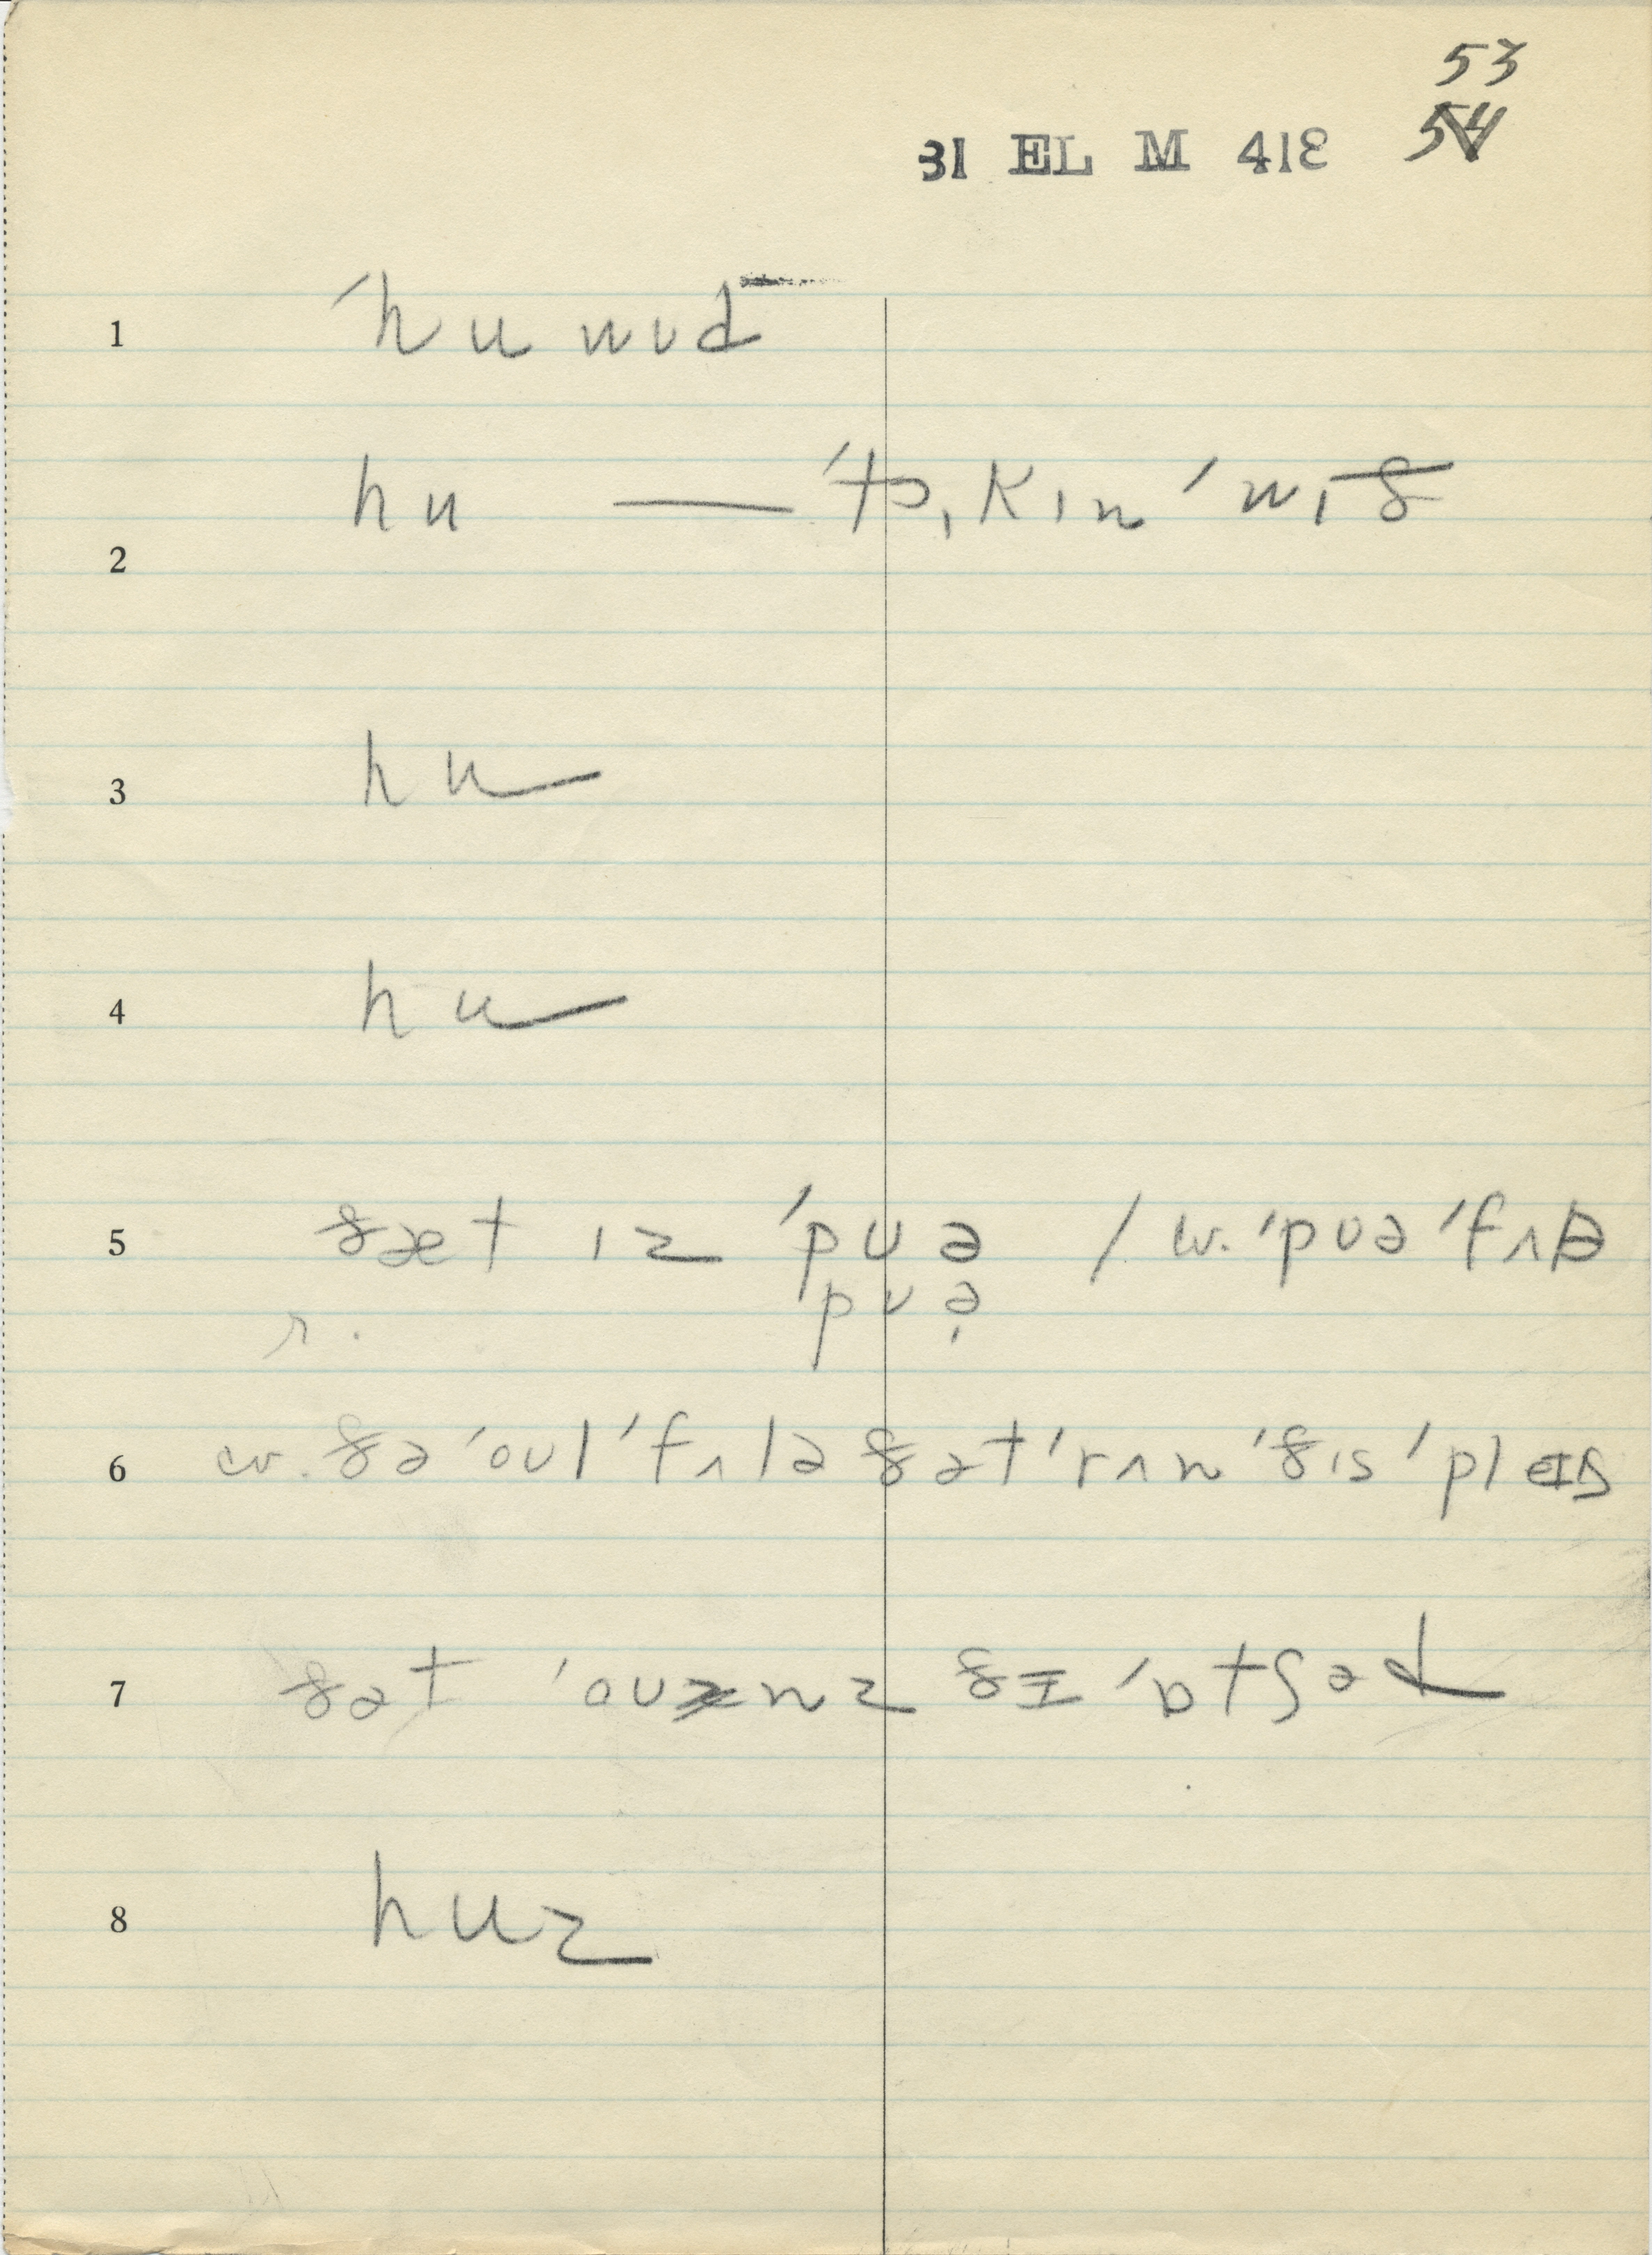 53
54
31 EL M 418
1 ˈhuwʊd
2 hu — ˈtɔˌkɪn ˈwɪð
3 hu
4 hu
5 ðæt ɪz ˈpʊə / w. ˈpʊə ˈfʌlə
r. ˈpʊə̣
6 w. ðə ˈoʊl ˈfʌlə ðət ˈrʌn ˈðɪs ˈpleɪs
7 ðət ˈoʊnz ðɪ ˈɒtʃəd
8 huz